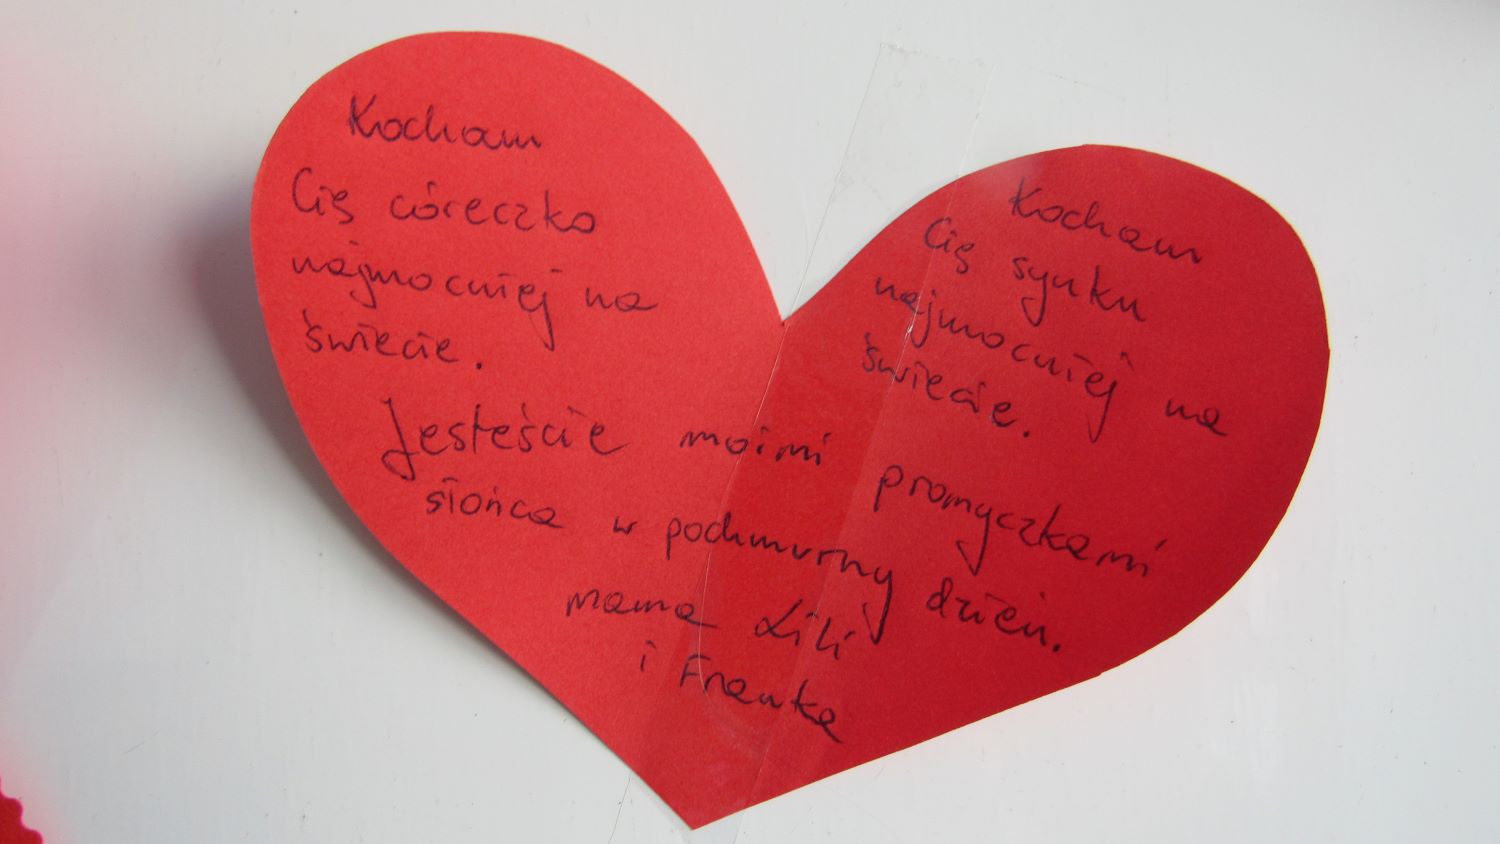 Kocham
Cię córeczko
najmocniej na
świecie.
Kocham
Cię synku
najmocniej na
świecie.
Jesteście moimi promyczkami
słońca w pochmurny dzień.
mama Lili
i Franka